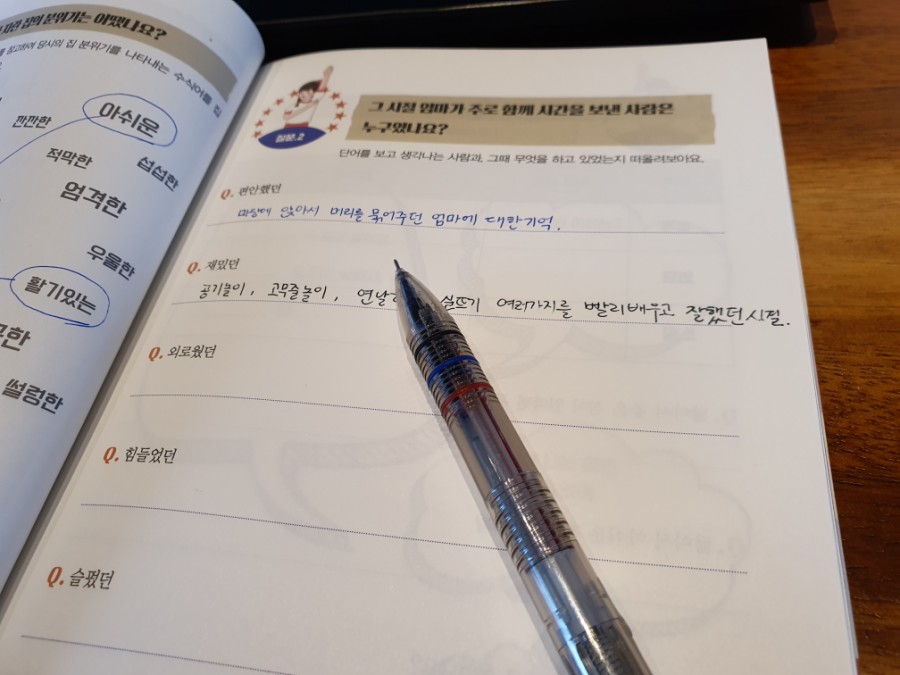 집의 분위기는 어땠나요?
당시의 집 분위기를 나타내는 수식어를
깐깐한
아쉬운
적막한
섭섭한
엄격한
우울한
활기있는
썰렁한
질문.2
그 시절 엄마가 주로 함께 시간을 보낸 사람은
누구였나요?
단어를 보고 생각나는 사람과, 그때 무엇을 하고 있었는지 떠올려보아요.
Q. 편안했던
마당에 앉아서 머리를 묶어주던 엄마에 대한기억.
Q. 재밌던
공기놀이, 고무줄놀이, 연날 실뜨기 여러가지를 빨리배우고 잘했던시절.
Q. 외로웠던
Q. 힘들었던
Q. 슬펐던